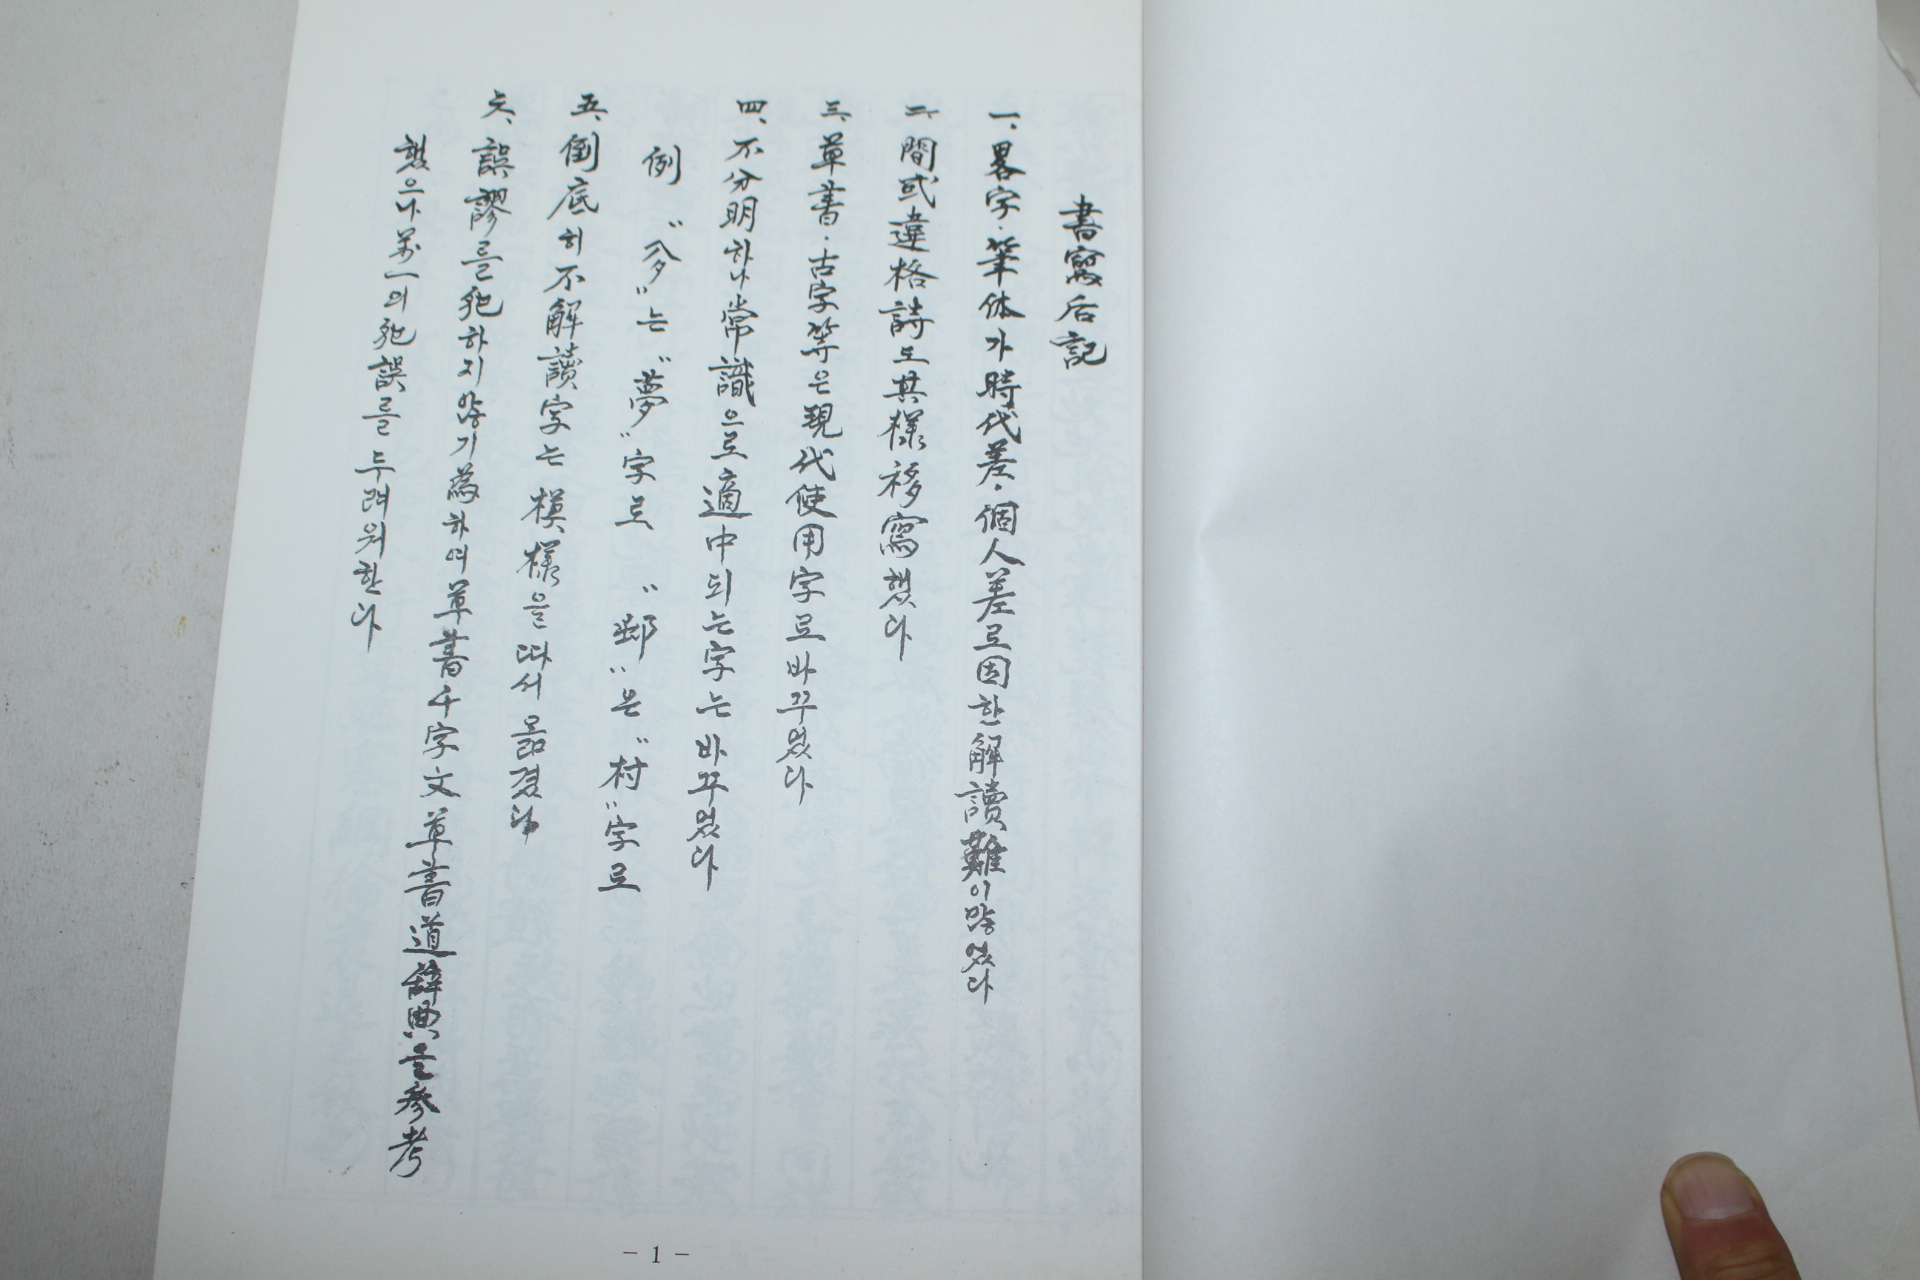 書寫后記
一、畧字·筆体가 時代差·個人差로 因한 解讀難이 많았다
二、間或 違格詩도 其樣 移寫했다
三、草書·古字等은 現代使用字로 바꾸었다
四、不分明하나 常識으로 適中되는 字는 바꾸었다
例 “夛”는 “夢”字로 “邨”은 “村”字로
五、倒底히 不解讀字는 模樣을 따서 옮겼다
六、誤謬를 犯하지 않기 爲하여 草書千字文 草書道辭典을 參考
했으나 萬一의 犯誤를 두려워한다
- 1 -